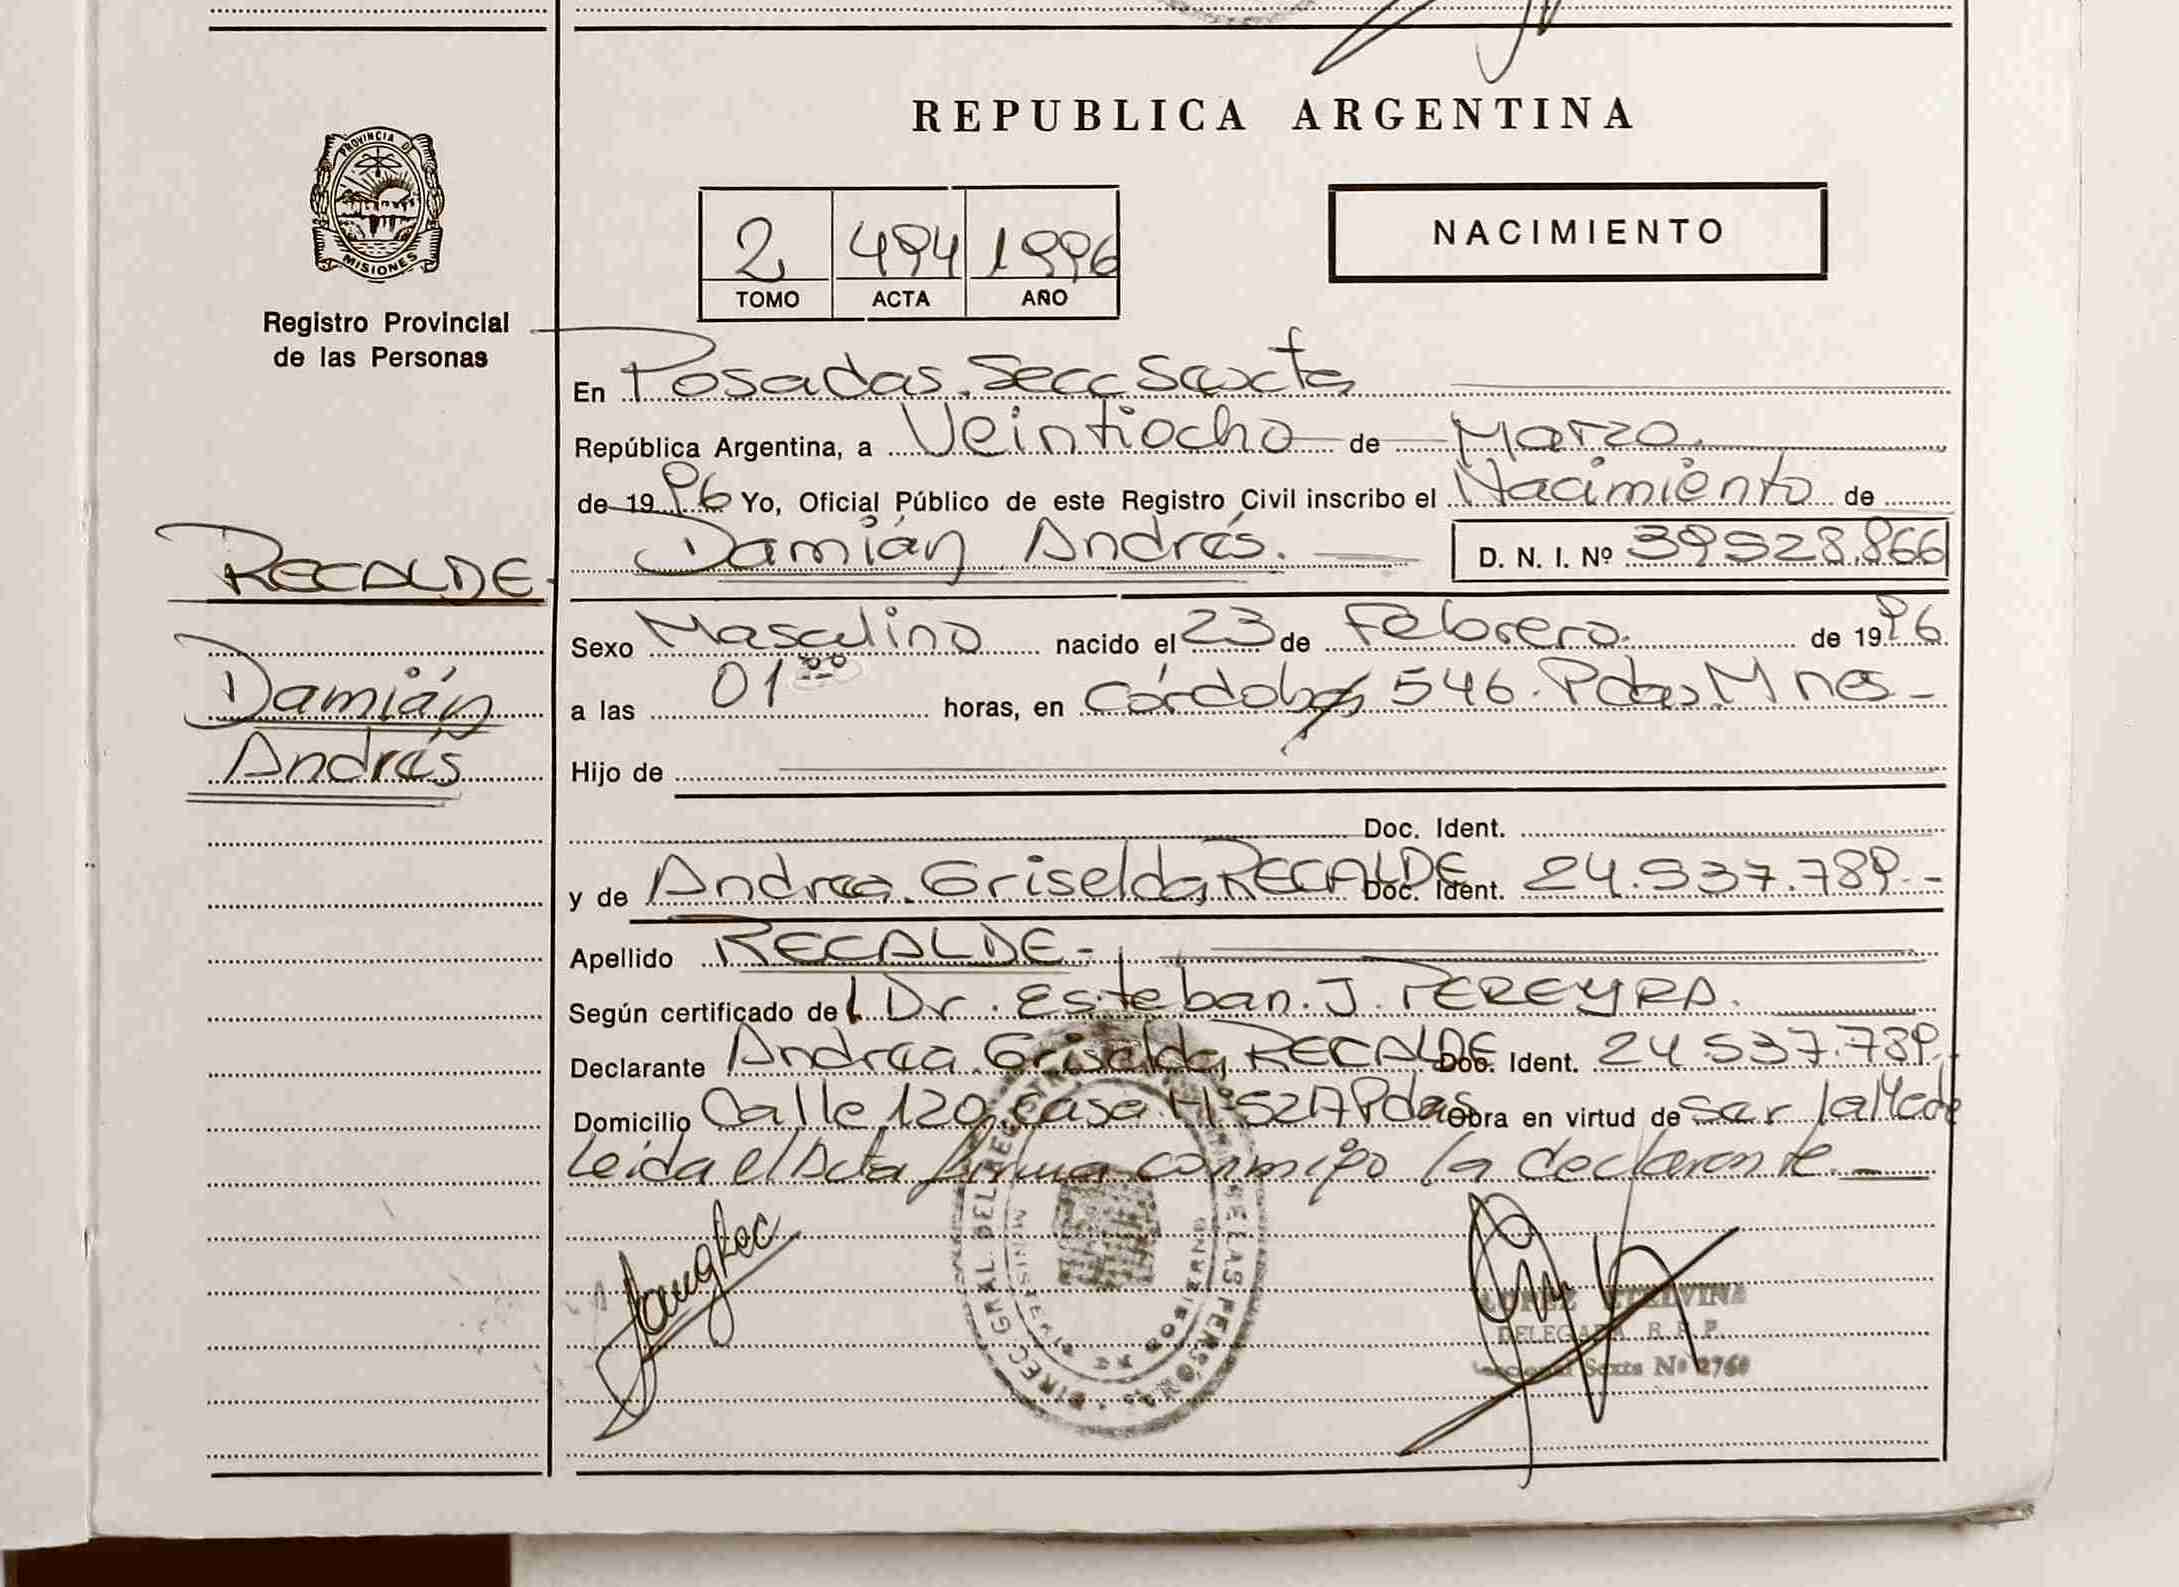 PROVINCIA DE
MISIONES
Registro Provincial
de las Personas
RECALDE
Damián
Andrés
REPUBLICA ARGENTINA
2 494 1996
TOMO ACTA AÑO
NACIMIENTO
En Posadas. Secc Sexta
República Argentina, a Veintiocho de Marzo.
de 1996 Yo, Oficial Público de este Registro Civil inscribo el Nacimiento de
Damián Andrés. D. N. I. Nº 39528.866
Sexo Masculino nacido el 23 de Febrero. de 1996.
a las 01 00 horas, en Córdoba 546. Pdas. Mnes -
Hijo de
Doc. Ident.
y de Andrea. Griselda, RECALDE Doc. Ident. 24.537.789.-
Apellido RECALDE-
Según certificado del Dr. Esteban. J. PEREYRA.
Declarante Andrea. Griselda, RECALDE Doc. Ident. 24.537.789.-
Domicilio Calle 120, casa Nº 527 Pdas Obra en virtud de ser la Madre
Leida el Acta firma conmigo la declarante.-
DIREC. GRAL. DEL REGISTRO DE LAS PERSONAS
MINISTERIO DE GOBIERNO
LOPEZ ETELVINA
DELEGADA R. P. P.
Seccional Sexta Nº 2760